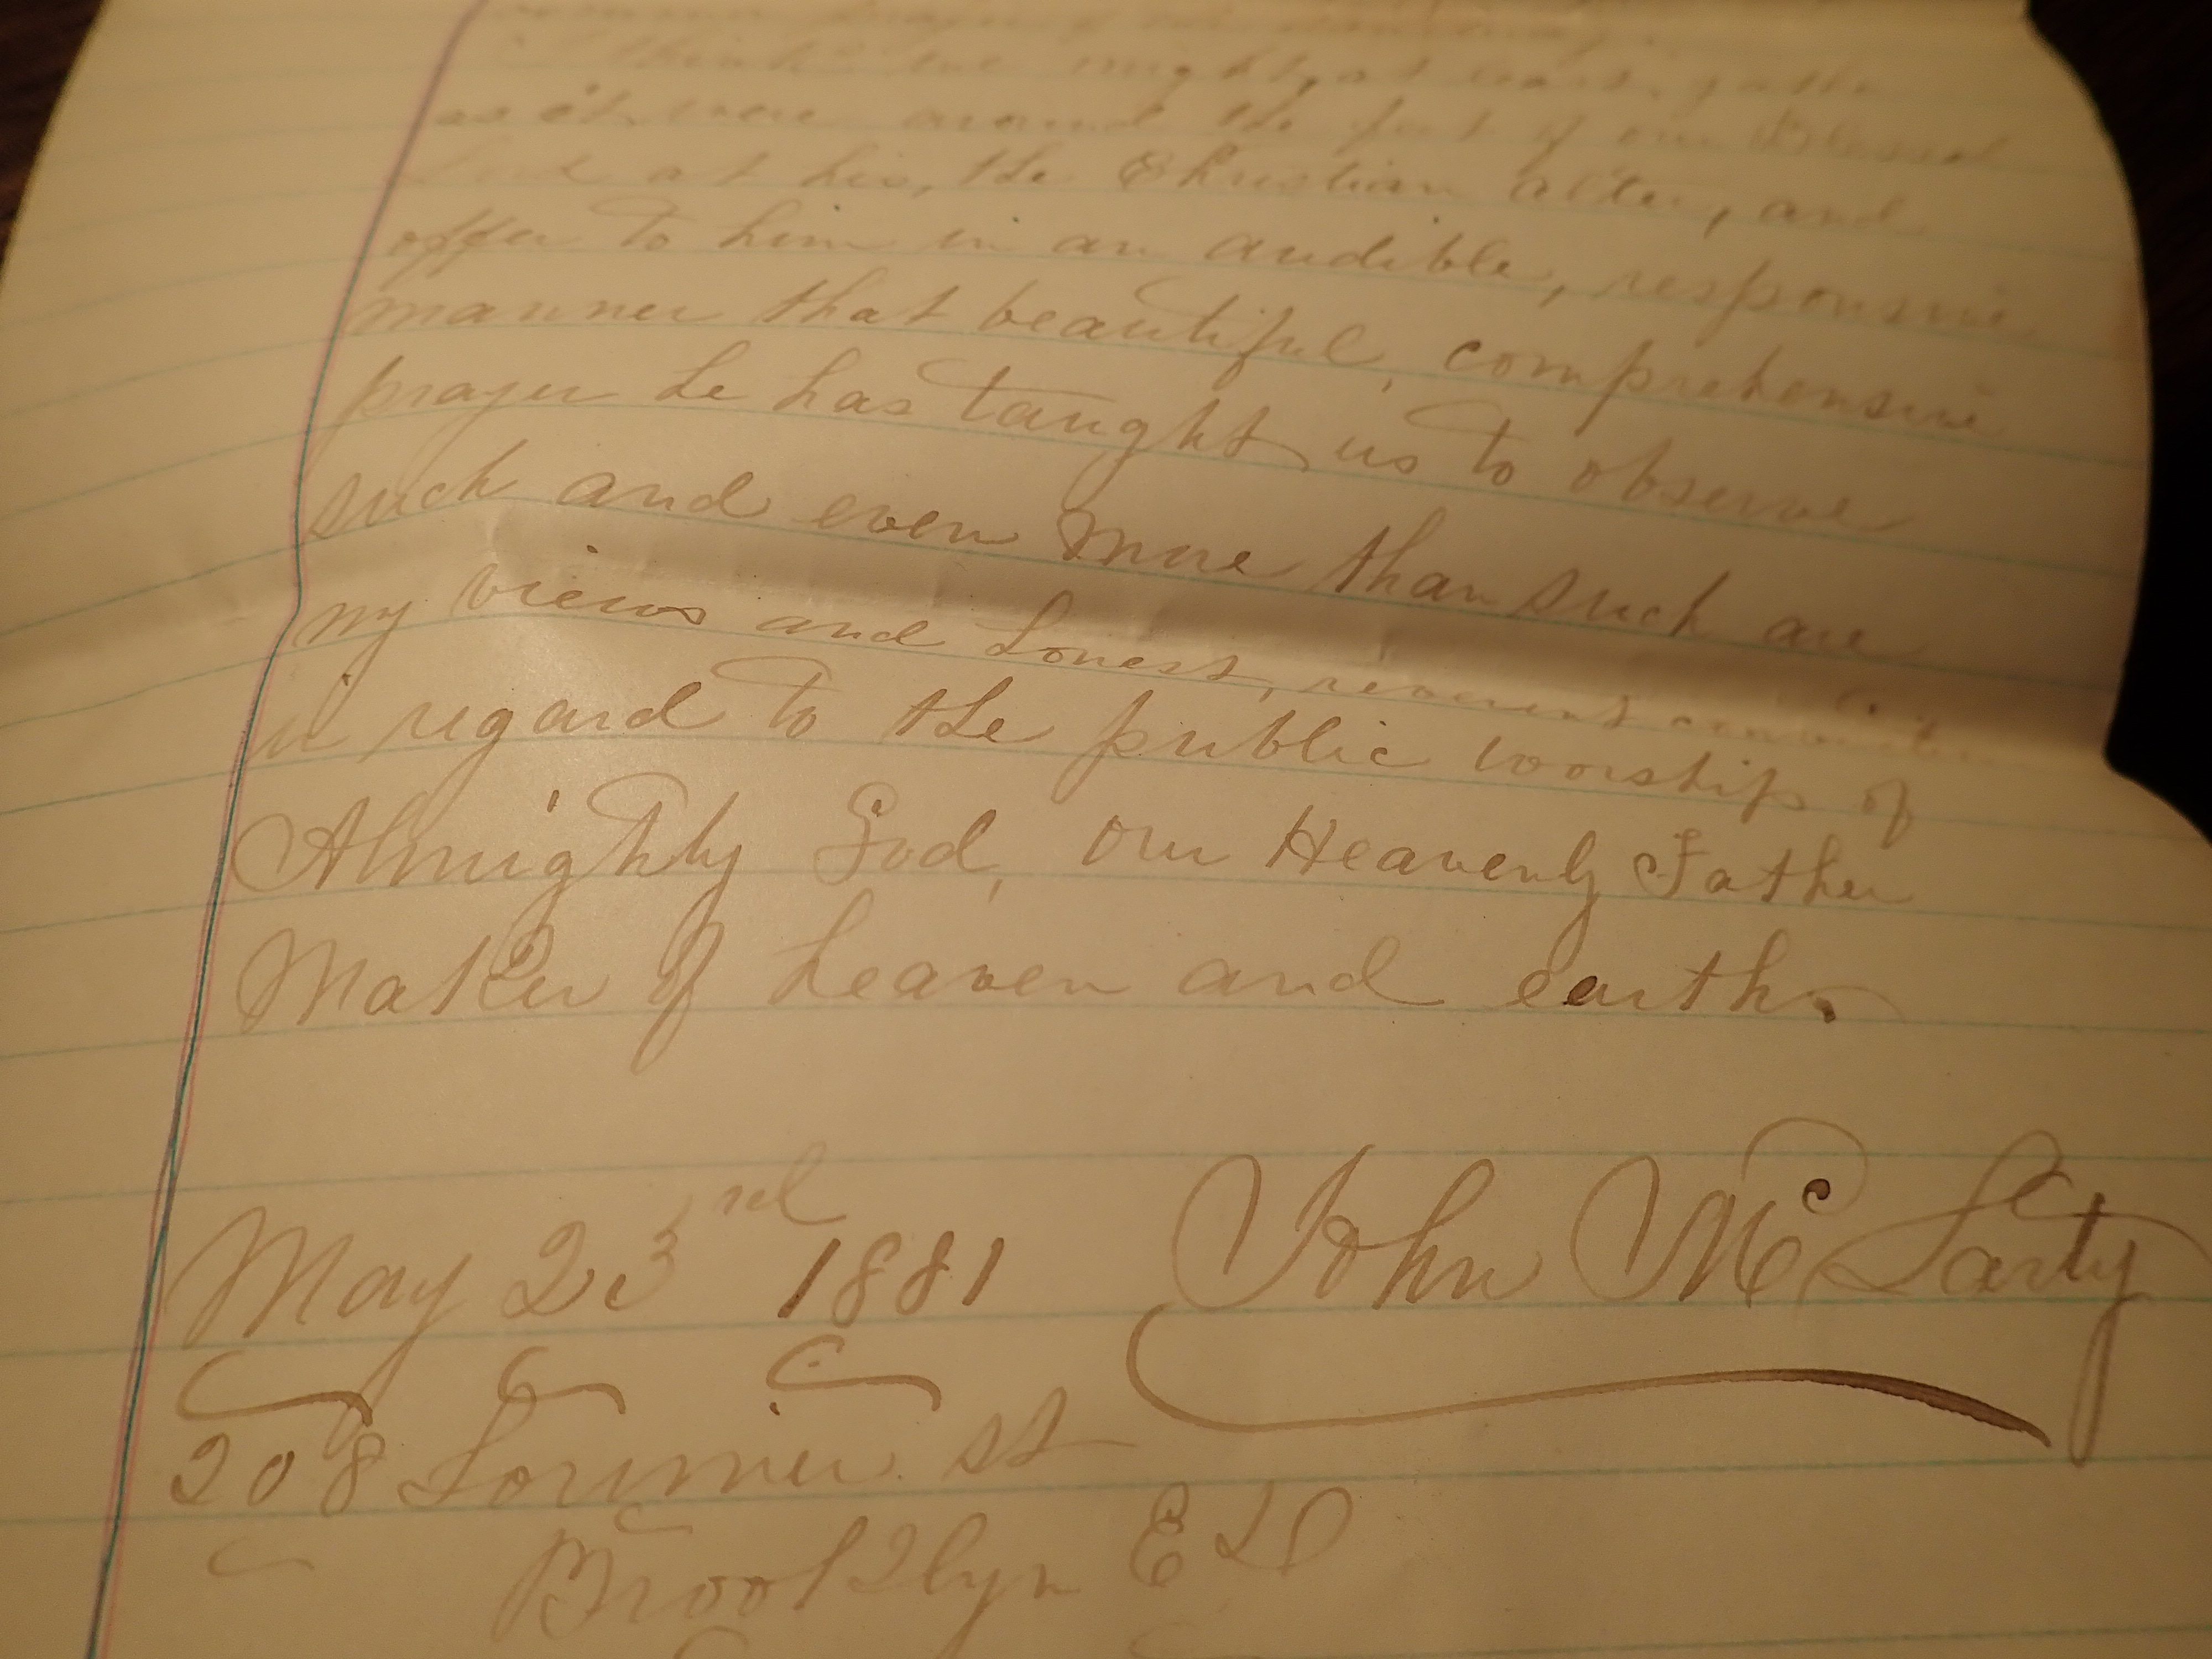 think we might, at least, gather
as it were around the feet of our Blessed
Lord at his, the Christian alter, and
offer to him in an audible, responsive
manner that beautiful, comprehensive
prayer he has taught us to observe
such and even more than such are
my views and honest, reverent convictions
in regard to the public worship of
Almighty God, our Heavenly Father
Maker of heaven and earth.
May 23rd 1881
John Mc Carty
208 Lorimer st
Brooklyn E D